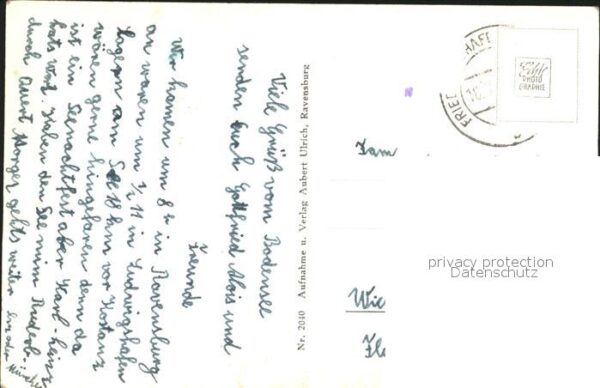 Viele Grüß vom Bodensee
senden Euch Gottfried Alois und
Freunde
Wir kamen um 8 in Ravensburg
an waren um ½ 11 in Ludwigshafen
Lagern am See 18 km vor Kostanz
wären gerne hingefaren denn da
ist ein Seenachtfest aber Karl-Heinz
hats Haben den See mim Ruderb.
durch Morgen gehts weiter
Nr. 2040 Aufnahme u. Verlag Aubert Ulrich, Ravensburg
FRIED HAFE
ECHTE PHOTO
Fam
privacy protection
Datenschutz